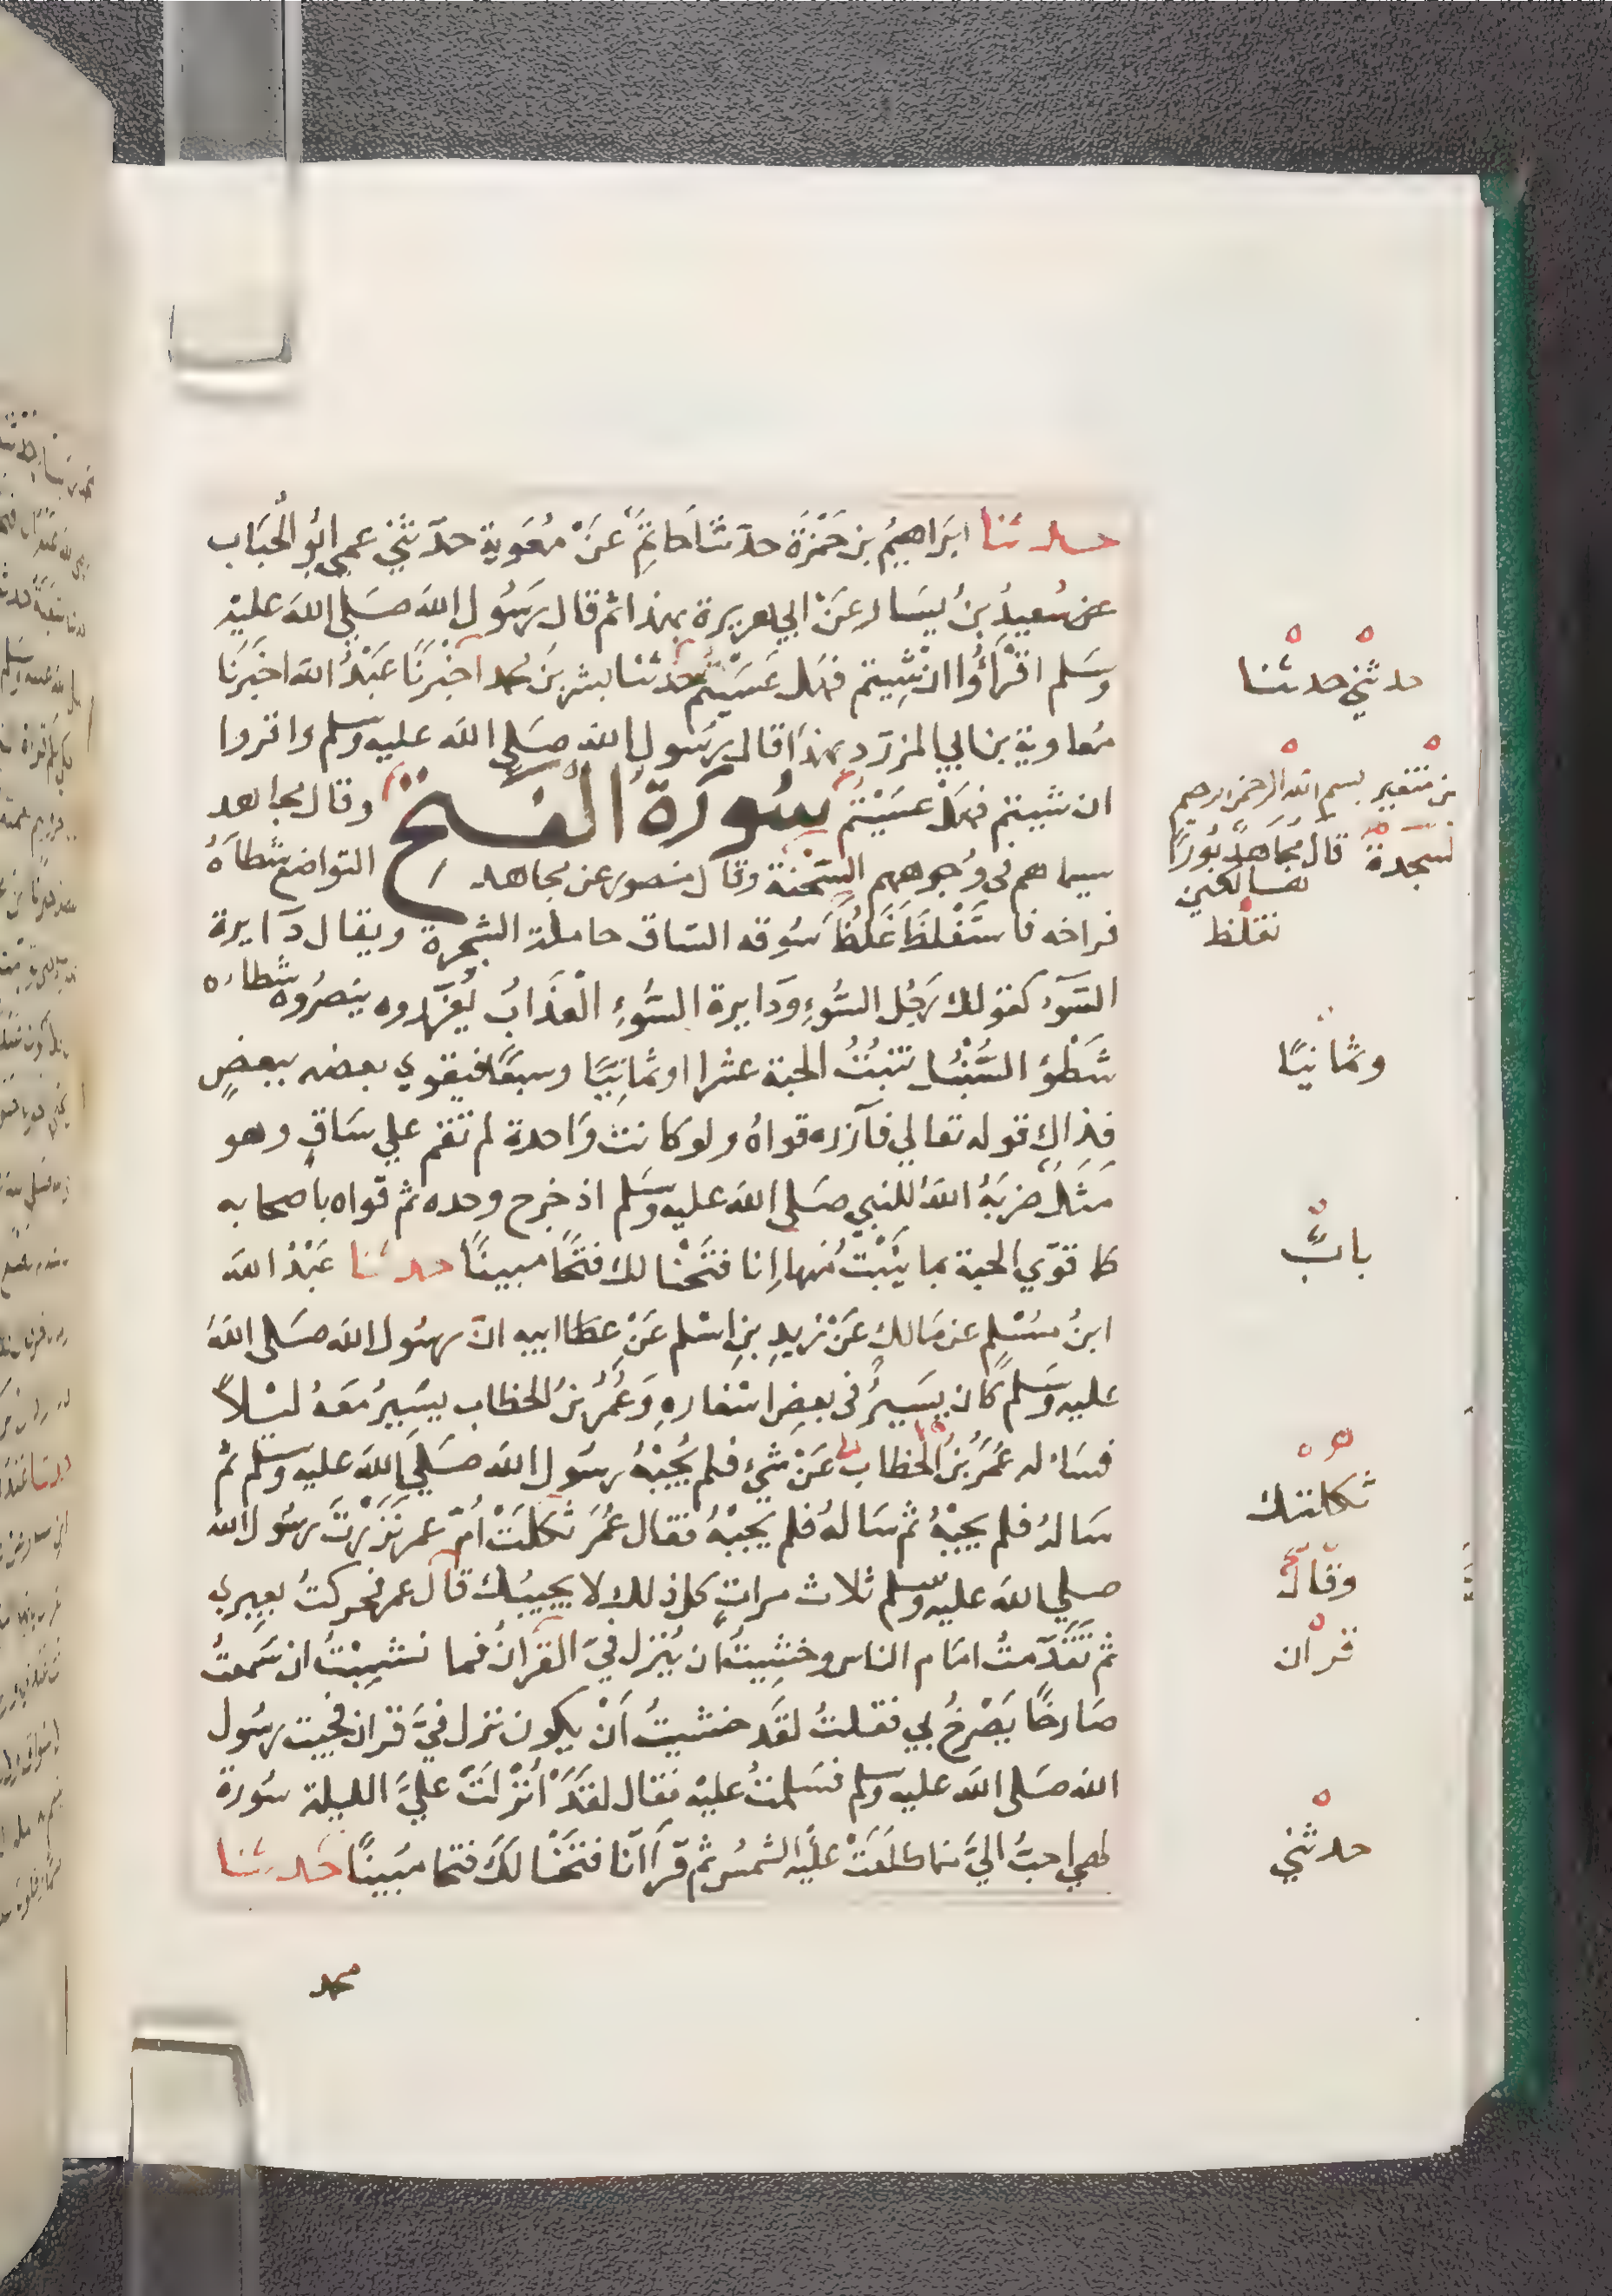 حدثنا ابرَاهِيمُ بن حَمْزَة حدّثنا حَاتِمٌ عَنْ مُعَوية حدّثني عمي ابُو الحُبَاب
عن سُعِيدِ بنُ يَسَار عَنْ ابي هريرة بهذا ثم قال رَسُول الله صَلى الله عليْه
وسَلم اقْرَأوُا ان شِيتم فهَل عَسَيْتُم حدثنا بشر بنَ محمد اخْبرَنَا عَبْدُ الله اخبَرَنَا
مُعاوية بن ابي المزرّدِ بهذا قال رسُول الله صَلى الله عليه وسلم واقروا
ان شيتم فهَلْ عسَيْتُم سُورَةُ الفتح وقال مجاهد
سيماهم في وُجوههم السَّحْنة وقال منصور عن مجاهد التواضع شطأهُ
فراخه فاستَغْلظَ غَلُظَ سُوقه السَاق حاملة الشجرة ويقال دَايرة
السَّوء كقولك رَجُل السُّوءِ ودَايرة السُّوءِ الْعَذَابُ يُعَزّروه ينصُروه شطاه
شَطْؤ السُّنْبُل تنبُتُ الحبة عشرا او ثمانِيَا وسبعًا فيقوي بعضه ببعضٍ
فذاك قوله تعالي فآزره قواهُ ولو كانت وَاحدة لم تقم علي سَاقٍ وهو
مَثَلٌ ضربَهُ اللهُ للنبي صَلى الله عليه وسَلم اذ خرج وحده ثم قواه باصحابه
كما قوّي الحبة بما يَنْبُت مُنها اِنا فتَحْنا لك فتحًا مبينًا حدثنا عَبْدُ الله
ابنُ مسْلِم عن مَالك عَنْ زيدِ بنِ اسْلم عَنْ عطا ابيه انّ رسُول الله صَلى اللهُ
عليه وَسَلم كان يسَيرُ في بعضِ اسْفارهِ وَعُمَرُ بنُ الخطاب يسَيرُ مَعَهُ ليْلاً
فسَاله عُمَرُ بْنُ الخَطاب عَنْ شيْ فلم يُجِبْهُ رسَول الله صَلي الله عليه وسَلم ثم
سَالهُ فلم يجبْهُ ثم سَالهُ فلم يجبْهُ فقال عُمَرَ ثكلَتْ اُمّ عمر نَزَرْتَ رسُول الله
صلي الله عليه وسلم ثلاث مراتٍ كل ذلك لا يجيبُك قال عمر فحركتُ بعِيري
ثم تقَدّمتُ امَام الناس وخشِيتُ ان يُنزل فيَ القرانُ فما نشِبْتُ ان سَمعتُ
صَارخًا يَصْرخُ بي فقلتُ لقَد خشيتُ اَنْ يكون نزل فيَّ قران فجيت رسُول
الله صَلى الله عليه وسلم فسَلمتُ عليْه فقال لقَدْ اُنْزلَتْ عليَّ الليلة سُورة
لهي احبُّ اليَّ مما طلَعَتْ عليْه الشمسُ ثم قرَا اَنّا فتَحْنا لكَ فتحا مبُينًا حدثنا
محمد
حدثني حدثنا
بسم الله الرحمن الرحيم
السجدة قال مجاهد بُورًا
هَالكين
تغلظ
وثمانيًا
بابٌ
ثكلتك
وقال
قران
حدثني